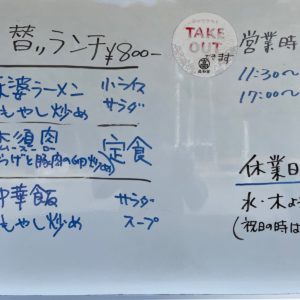 替りランチ ¥800-
婆ラーメン 小ライス
もやし炒め サラダ
木須肉 定食
ムースーロー
らげと豚肉の卵炒め)
中華飯 サラダ
もやし炒め スープ
TAKE
OUT
できます
営業時
11:30～
17:00～
休業日
水・木よ
(祝日の時は